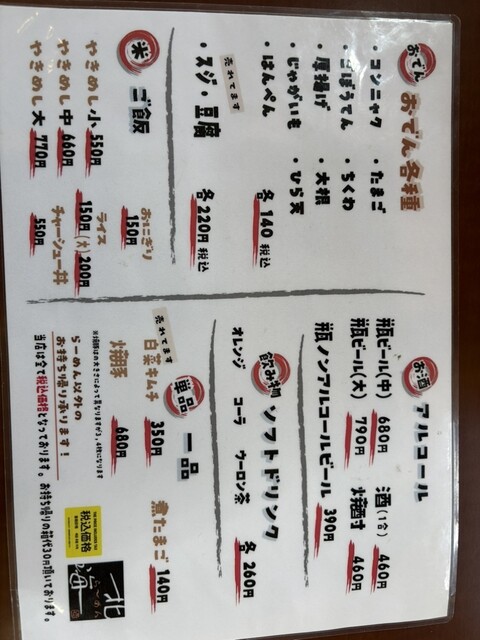 おでん おでん各種
・コンニャク ・たまご
・ごぼうてん ・ちくわ
・厚揚げ ・大根
・じゃがいも ・ひら天
・はんぺん 各140 税込
売れてます
・スジ・豆腐 各220円 税込
米 ご飯
やきめし小 550円
やきめし中 660円
やきめし大 770円
おにぎり 150円
ライス 150円 (大)200円
チャーシュー丼 550円
お酒 アルコール
瓶ビール(中) 680円
瓶ビール(大) 790円
酒(1合) 460円
焼酎 460円
瓶ノンアルコールビール 390円
飲み物 ソフトドリンク
オレンジ コーラ ウーロン茶 各260円
単品 一品
売れてます
白菜キムチ 350円
煮たまご 140円
焼豚 680円
※焼豚は大きさによって異なりますが3,4枚になります
らーめん以外の
お持ち帰り承ります!
当店は全て税込価格となっております。お持ち帰りの箱代30円頂いております。
税込価格
らーめん
北海